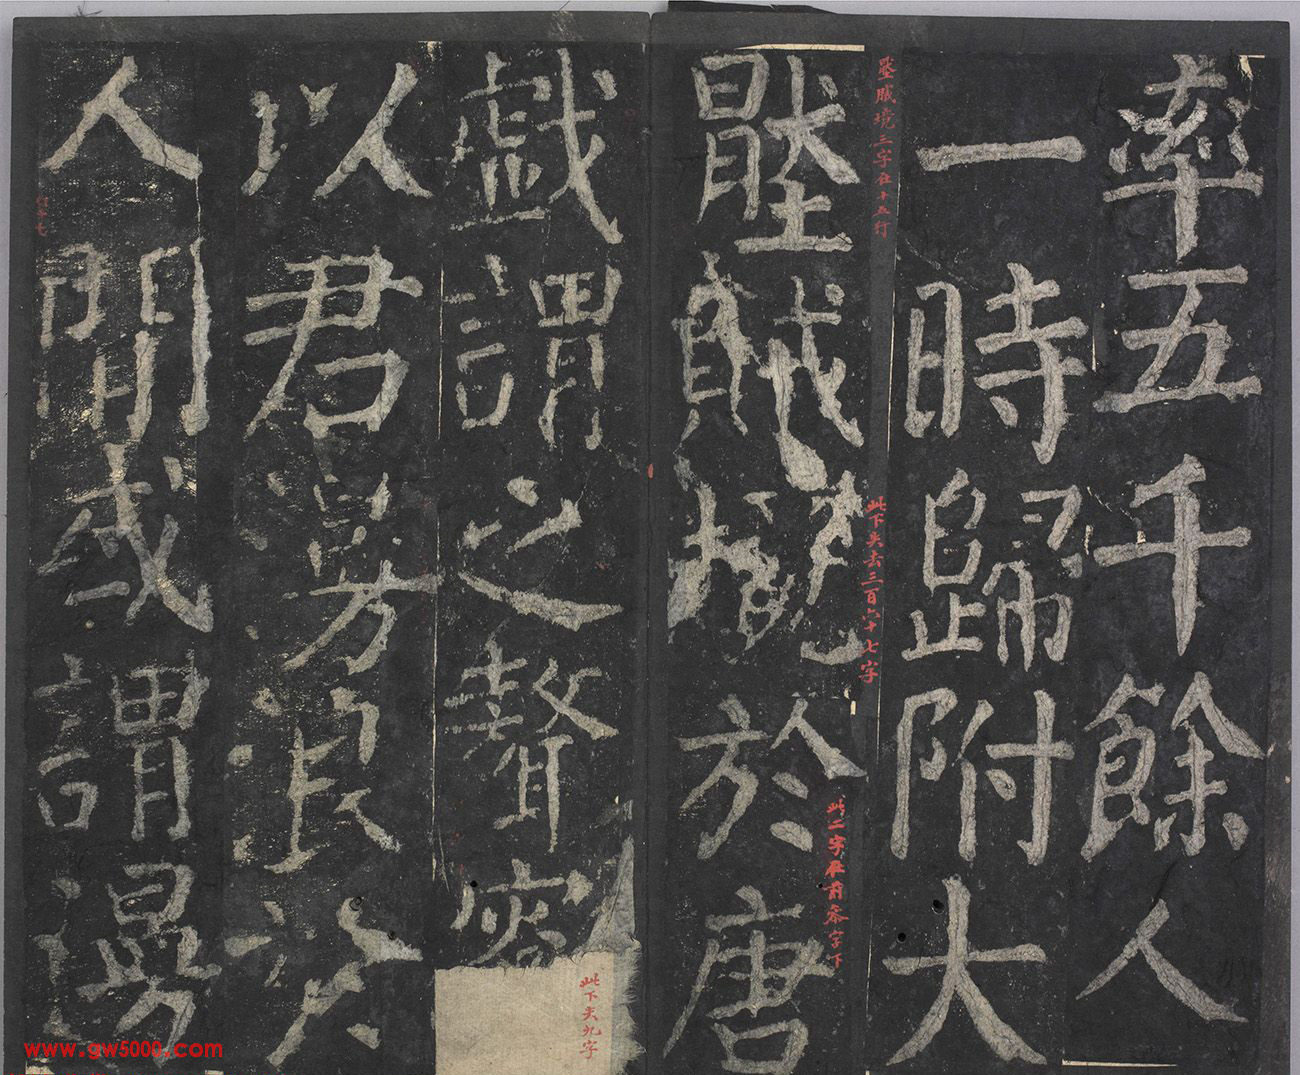 率五千餘人
一時歸附大
壓賊境三字在十五行
此下失去三百六十七字
壓賊境於唐
此二字在前蔡字下
戲謂之聱叜
此下失九字
以君漫浪於
人間或謂漫
www.gw5000.com